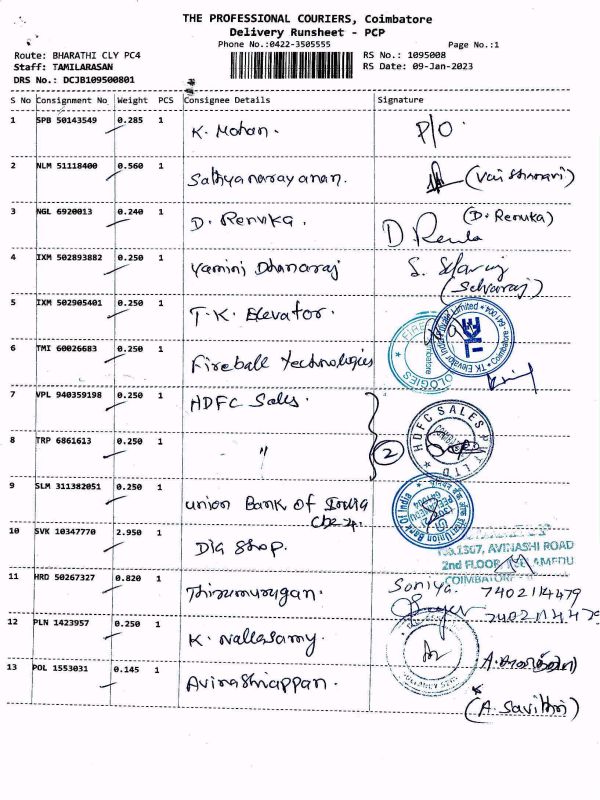 THE PROFESSIONAL COURIERS, Coimbatore
Delivery Runsheet - PCP
Phone No.:0422-3505555
Page No.:1
Route: BHARATHI CLY PC4
RS No.: 1095008
Staff: TAMILARASAN
RS Date: 09-Jan-2023
DRS No.: DCJB109500801
S No Consignment No Weight PCS Consignee Details Signature
1 SPB 50143549 0.285 1 K. Mohan. P/O
2 NLM 51118400 0.560 1 Sathyanarayanan. (Vaishnavi)
3 NGL 6920013 0.240 1 D. Renuka. (D. Renuka)
4 IXM 502893882 0.250 1 Yamini Dhanaraj (Selvaraj)
5 IXM 502905401 0.250 1 T.K. Elevator.
6 TMI 60026683 0.250 1 Fireball Technologies
7 VPL 940359198 0.250 1 HDFC Sales.
HDFC SALES
8 TRP 6861613 0.250 1 " 2
9 SLM 311382051 0.250 1 Union Bank Of India
Union Bank Of India
10 SVK 10347770 2.950 1 Dig Shop.
1307, AVINASHI ROAD
2nd FLOOR
COIMBATORE
11 HRD 50267327 0.820 1 Thirumurugan. Soniya. 7402114479
12 PLN 1423957 0.250 1 K. Nallasamy.
13 POL 1553031 0.145 1 Avinashiappan.
(A. Savithri)